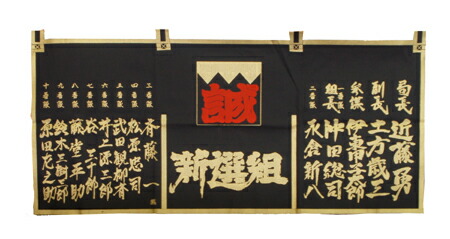 局長 近藤勇
副長 土方歳三
参謀 伊東甲子太郎
一番隊組長 沖田総司
二番隊 永倉新八
誠
新選組
三番隊 斉藤一
四番隊 松原忠司
五番隊 武田観柳斉
六番隊 井上源三郎
七番隊 谷三十郎
八番隊 藤堂平助
九番隊 鈴木三樹三郎
十番隊 原田左之助